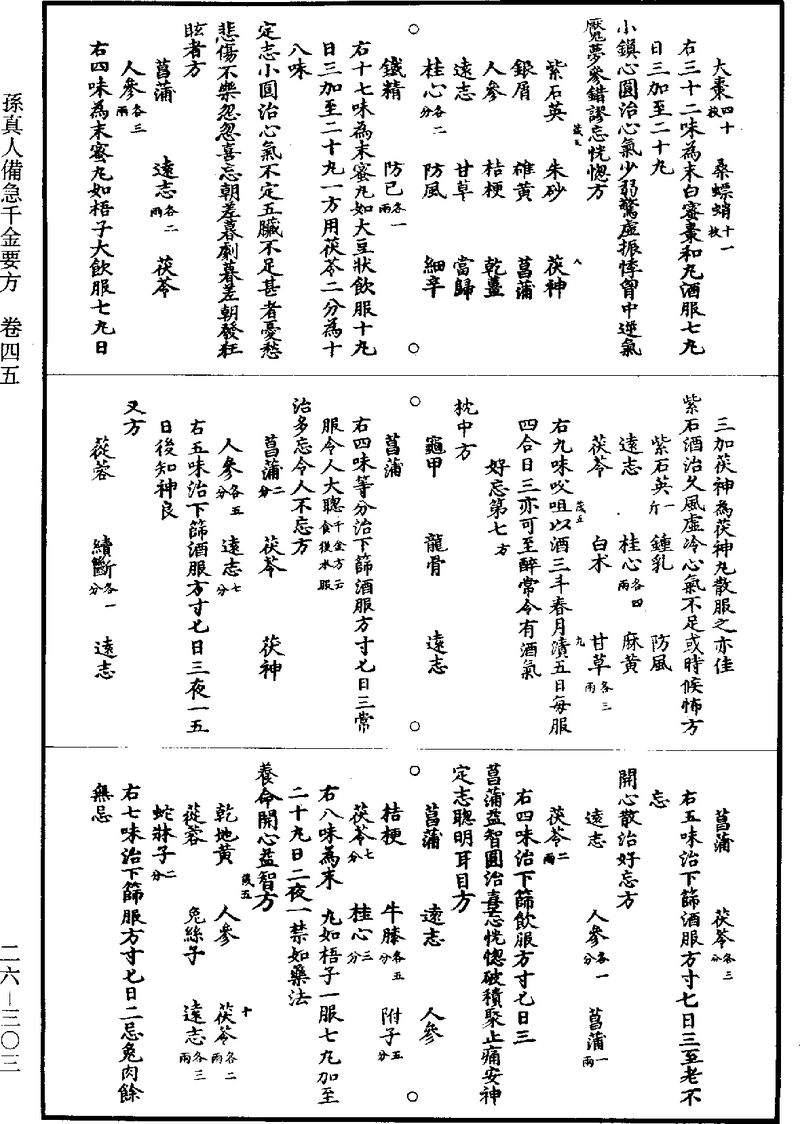 孫真人備急千金要方　卷四五
二六—三〇三
大棗四十枚　桑螵蛸十一枚
右三十二味為末白蜜棗和丸酒服七丸
日三加至二十九
小鎮心圓治心氣少弱驚虛振悸胷中逆氣
魘夢參錯謬忘恍惚方
紫石英　朱砂　茯神
銀屑　雄黃　菖蒲
人參　桔梗　乾薑
遠志　甘草　當歸
桂心各二分　防風　細辛
鐵精　防己各一兩
右十七味為末蜜丸如大豆狀飲服十九
日三加至二十九一方用茯苓二分為十
八味
定志小圓治心氣不定五臟不足甚者憂愁
悲傷不樂忽忽喜忘朝差暮劇暮差朝發狂
眩者方
菖蒲　遠志各二兩　茯苓
人參各三兩
右四味為末蜜丸如梧子大飲服七丸日
三加茯神為茯神丸散服之亦佳
紫石酒治久風虛冷心氣不足或時候怖方
紫石英一斤　鍾乳　防風
遠志　桂心各四兩　麻黃
茯苓　白朮　甘草各三兩
右九味㕮咀以酒三斗春月漬五日每服
四合日三亦可至醉常令有酒氣
好忘第七方
枕中方
龜甲　龍骨　遠志
菖蒲
右四味等分治下篩酒服方寸匕日三常
服令人大聰千金方云食後水服
治多忘令人不忘方
菖蒲二分　茯苓　茯神
人參各五分　遠志七分
右五味治下篩酒服方寸匕日三夜一五
日後知神良
又方
蓯蓉　續斷各一分　遠志
菖蒲　茯苓各三分
右五味治下篩酒服方寸匕日三至老不
忘
開心散治好忘方
遠志　人參各一分　菖蒲一兩
茯苓二兩
右四味治下篩飲服方寸匕日三
菖蒲益智圓治喜忘恍惚破積聚止痛安神
定志聰明耳目方
菖蒲　遠志　人參
桔梗　牛膝各五分　附子五分
茯苓七分　桂心三分
右八味為末　丸如梧子一服七丸加至
二十九日二夜一禁如藥法
養命開心益智方
乾地黃　人參　茯苓各二兩
蓯蓉　兔絲子　遠志各三兩
蛇牀子二分
右七味治下篩服方寸匕日二忌兔肉餘
無忌